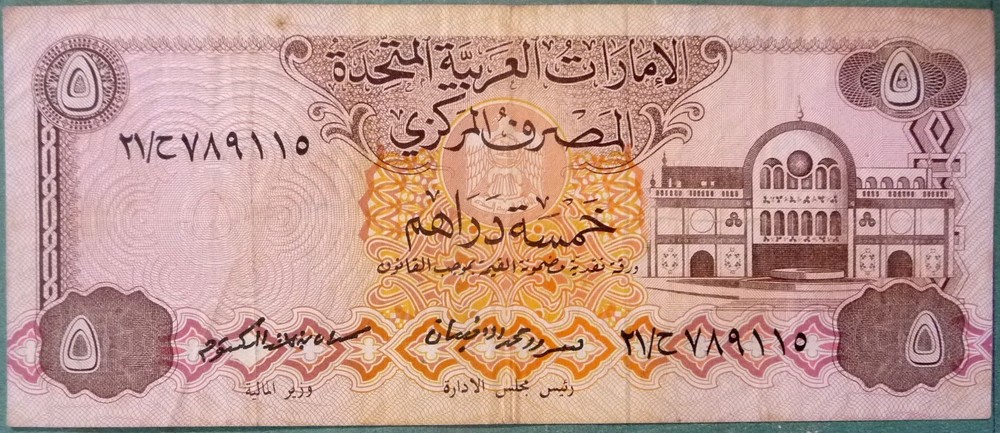 ٥ الإمارات العربية المتحدة ٥
المصرف المركزي
٢١/ح٧٨٩١١٥
خمسة دراهم
ورقة نقدية مضمونة القيمة بموجب القانون
٢١/ح٧٨٩١١٥
٥ ٥
وزير المالية رئيس مجلس الادارة